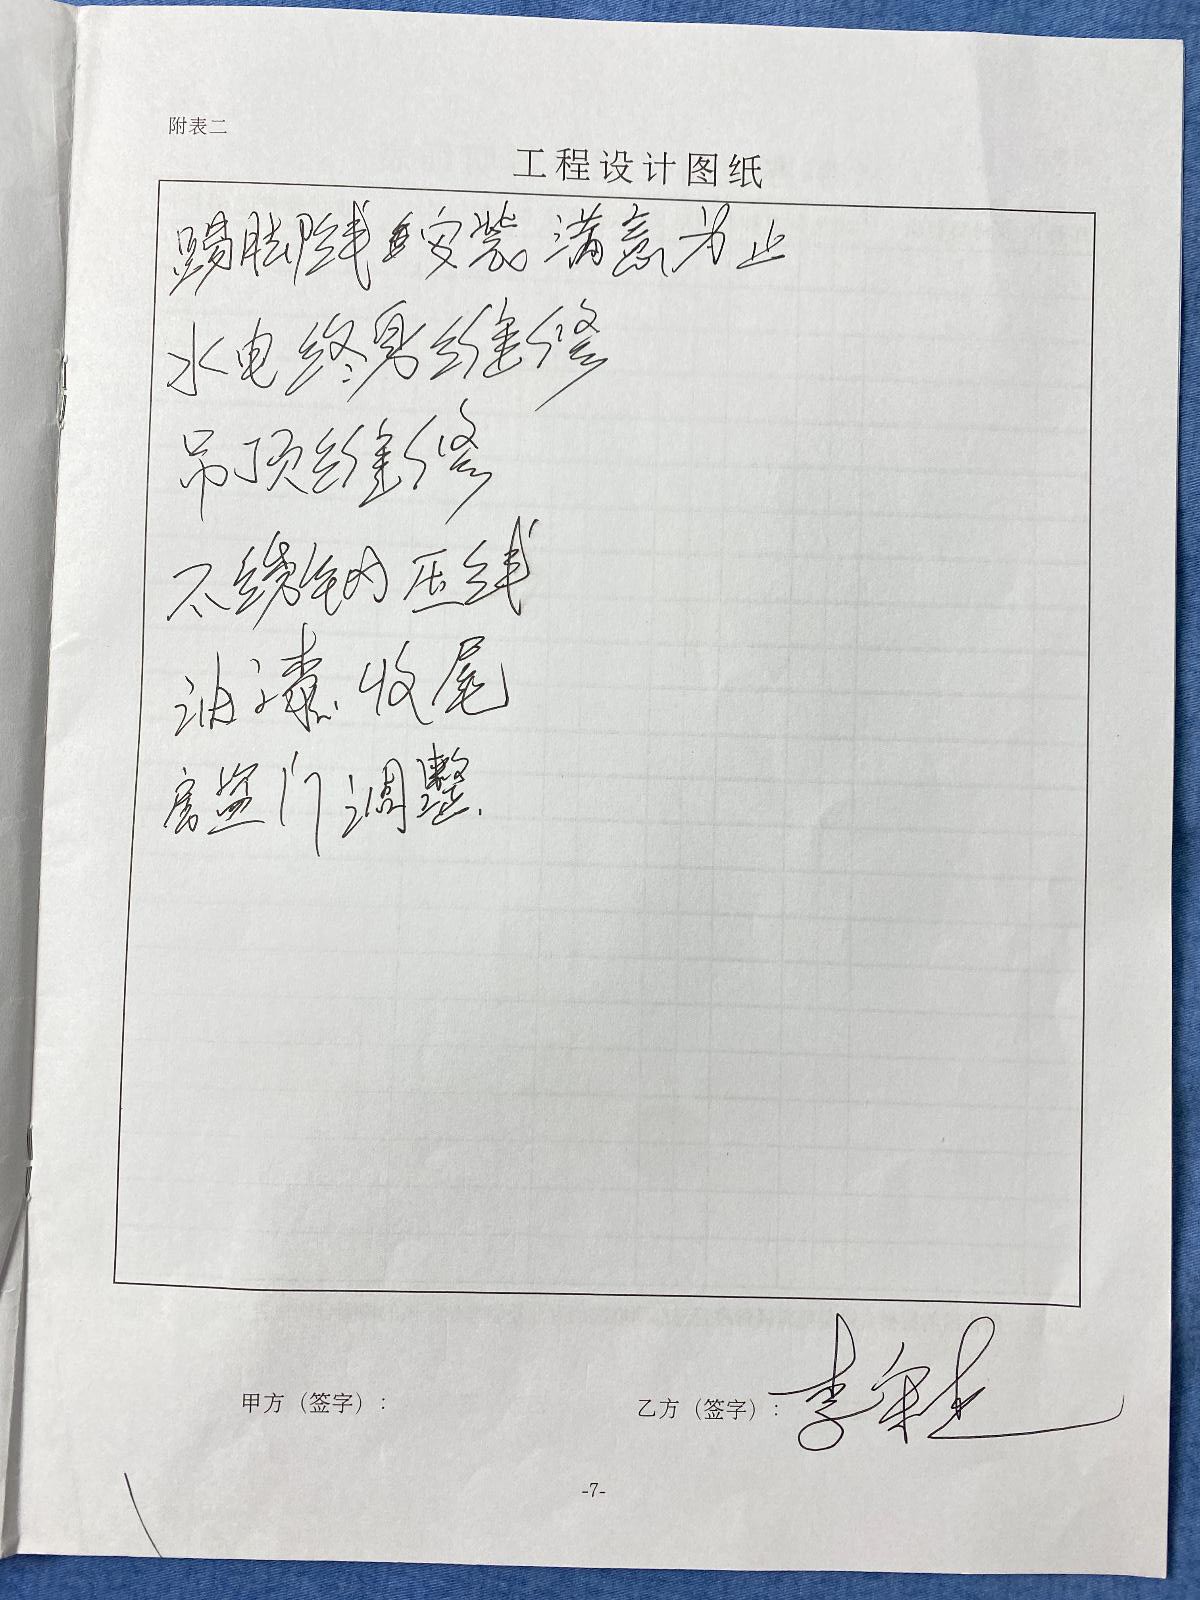 附表二
工程设计图纸
踢脚线安装满意为止
水电终身维修
吊顶维修
不锈钢压线
油漆收尾
房盗门调整.
甲方（签字）：
乙方（签字）：李
-7-